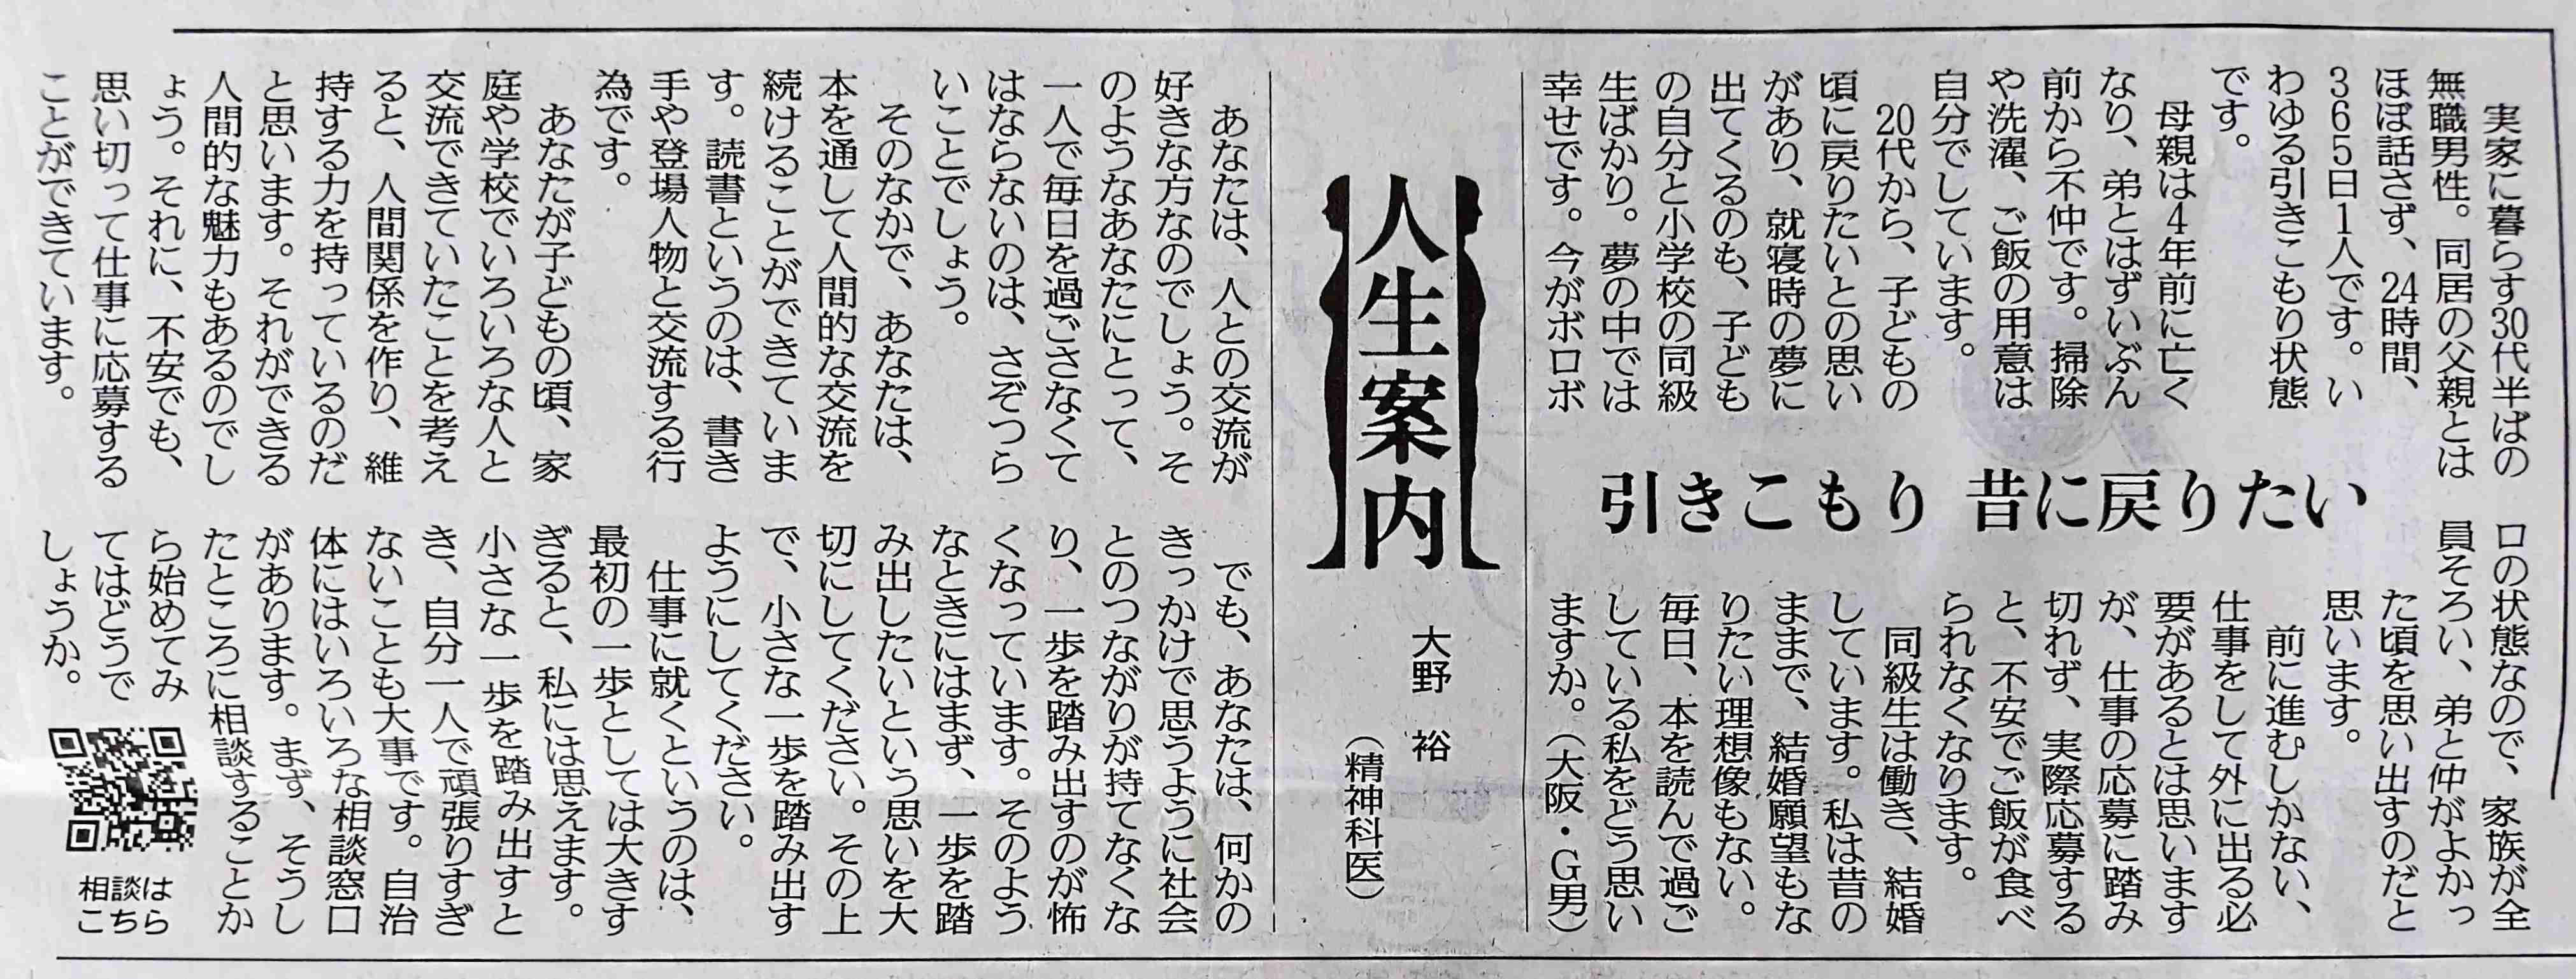 引きこもり 昔に戻りたい
実家に暮らす30代半ばの
無職男性。同居の父親とは
ほぼ話さず、24時間、
365日1人です。い
わゆる引きこもり状態
です。
母親は4年前に亡く
なり、弟とはずいぶん
前から不仲です。掃除
や洗濯、ご飯の用意は
自分でしています。
20代から、子どもの
頃に戻りたいとの思い
があり、就寝時の夢に
出てくるのも、子ども
の自分と小学校の同級
生ばかり。夢の中では
幸せです。今がボロボ
ロの状態なので、家族が全
員そろい、弟と仲がよかっ
た頃を思い出すのだと
思います。
前に進むしかない、
仕事をして外に出る必
要があるとは思います
が、仕事の応募に踏み
切れず、実際応募する
と、不安でご飯が食べ
られなくなります。
同級生は働き、結婚
しています。私は昔の
ままで、結婚願望もな
りたい理想像もない。
毎日、本を読んで過ご
している私をどう思い
ますか。（大阪・G男）
人生案内
大野 裕
（精神科医）
あなたは、人との交流が
好きな方なのでしょう。そ
のようなあなたにとって、
一人で毎日を過ごさなくて
はならないのは、さぞつら
いことでしょう。
そのなかで、あなたは、
本を通して人間的な交流を
続けることができていま
す。読書というのは、書き
手や登場人物と交流する行
為です。
あなたが子どもの頃、家
庭や学校でいろいろな人と
交流できていたことを考え
ると、人間関係を作り、維
持する力を持っているのだ
と思います。それができる
人間的な魅力もあるのでし
ょう。それに、不安でも、
思い切って仕事に応募する
ことができています。
でも、あなたは、何かの
きっかけで思うように社会
とのつながりが持てなくな
り、一歩を踏み出すのが怖
くなっています。そのよう
なときにはまず、一歩を踏
み出したいという思いを大
切にしてください。その上
で、小さな一歩を踏み出す
ようにしてください。
仕事に就くというのは、
最初の一歩としては大きす
ぎると、私には思えます。
小さな一歩を踏み出すと
き、自分一人で頑張りすぎ
ないことも大事です。自治
体にはいろいろな相談窓口
があります。まず、そうし
たところに相談することか
ら始めてみ
てはどうで
しょうか。
相談は
こちら